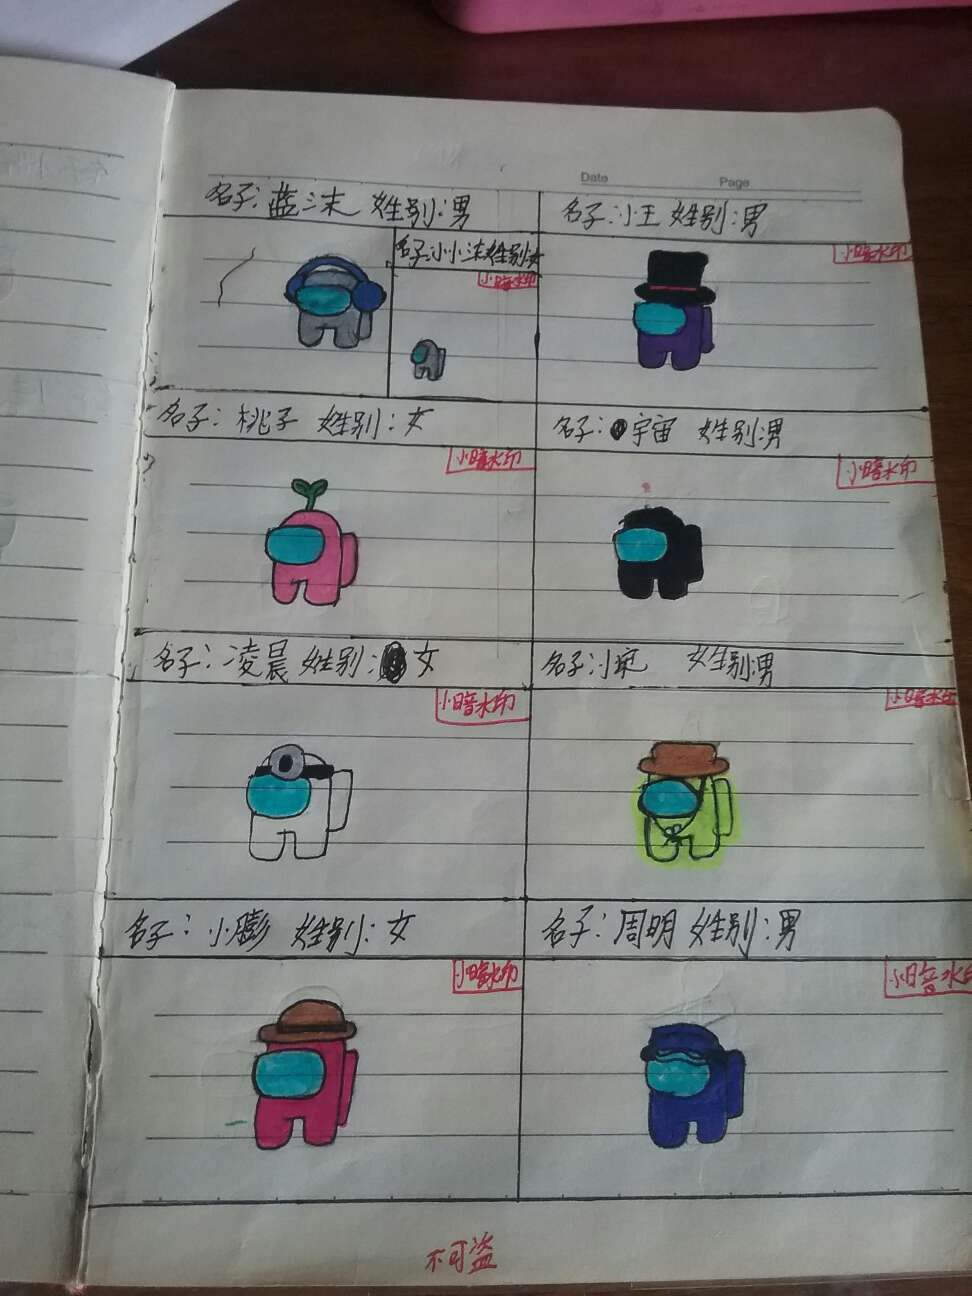 Date Page
名子:蓝沫 姓别:男
名子:小王 姓别:男
名子:小小沫姓别:女
小暗水印
小暗水印
名子:桃子 姓别:女
名子:宇宙 姓别:男
小暗水印
小暗水印
名子:凌晨 姓别:女
名子:小 姓别:男
小暗水印
小暗水印
名子:小膨 姓别:女
名子:周明 姓别:男
小暗水印
小暗水印
不可盗